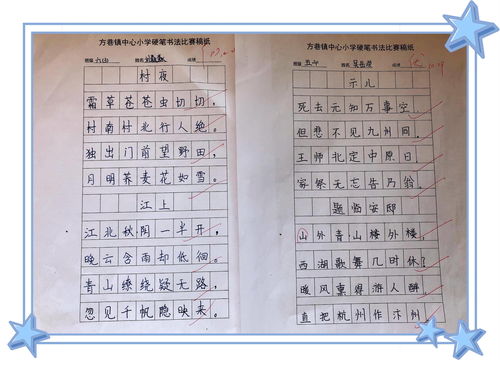 方巷镇中心小学硬笔书法比赛稿纸
班级 六(2) 姓名 成绩
村夜
霜草苍苍虫切切,
村南村北行人绝。
独出门前望野田,
月明荞麦花如雪。
江上
江北秋阴一半开,
晚云含雨却低徊。
青山缭绕疑无路,
忽见千帆隐映来。
方巷镇中心小学硬笔书法比赛稿纸
班级 姓名 成绩
示儿
死去元知万事空,
但悲不见九州同。
王师北定中原日,
家祭无忘告乃翁。
题临安邸
山外青山楼外楼,
西湖歌舞几时休?
暖风熏得游人醉,
直把杭州作汴州。